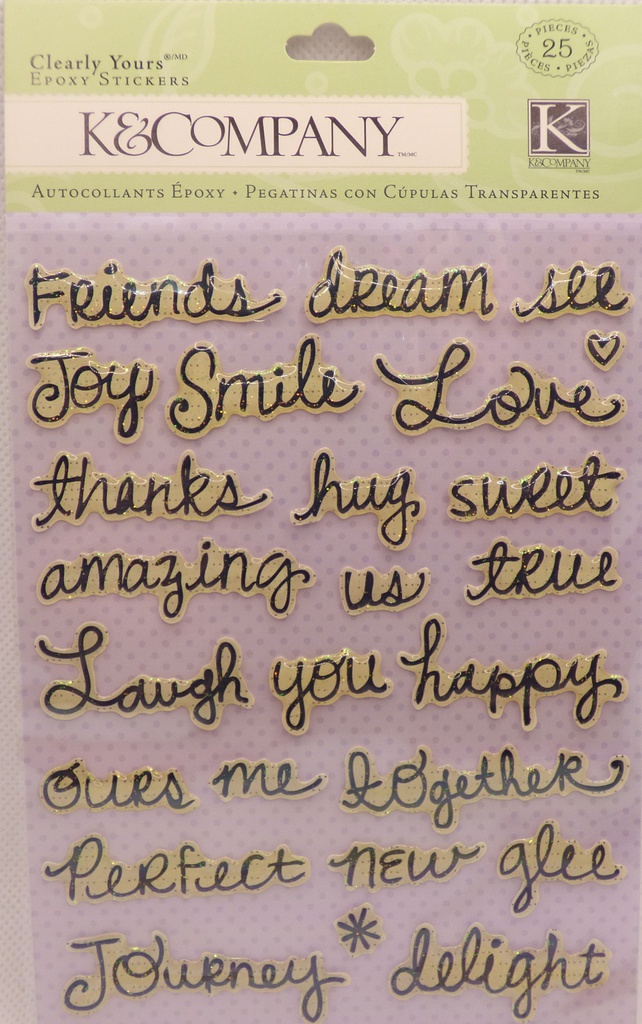 Clearly Yours®/MD
Epoxy Stickers
PIECES • PIÈCES • PIEZAS •
25
K&COMPANY TM/MC
K
K&COMPANY TM/MC
Autocollants Époxy • Pegatinas con Cúpulas Transparentes
Friends dream see
Joy Smile Love
thanks hug sweet
amazing us true
Laugh you happy
ours me together
Perfect new glee
Journey * delight